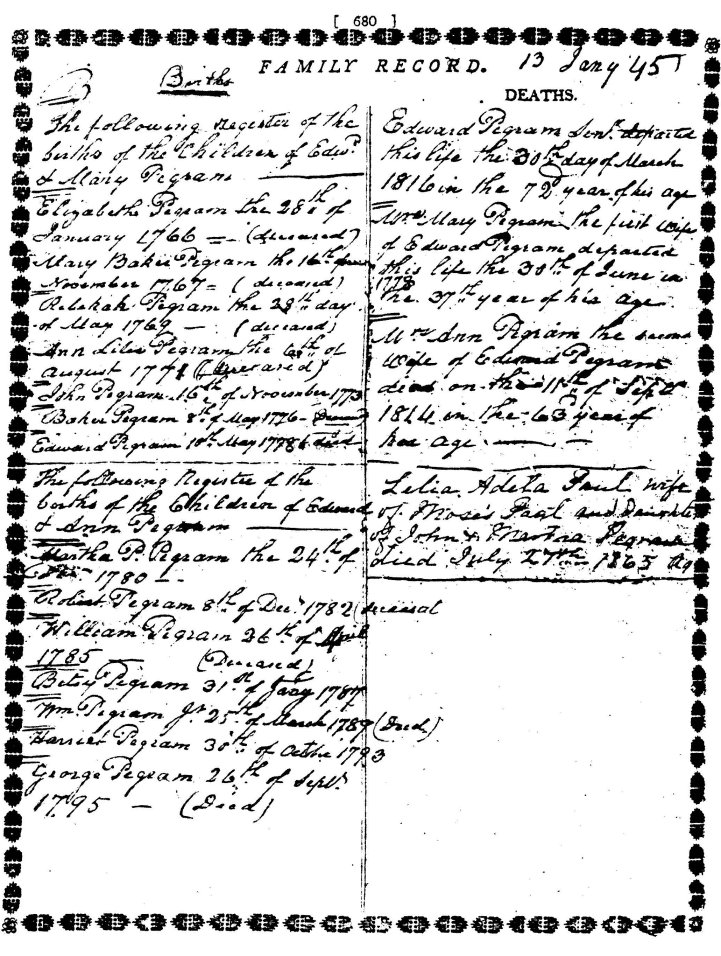 [ 680 ]
FAMILY RECORD.
13 Jany 45
Births
The following Register of the
births of the Children of Edwd.
& Mary Pegram
Elizabeth Pegram the 28th of
January 1766 = (deceased)
Mary Baker Pegram the 16th
November 1767 = (deceased)
Rebekah Pegram the 28th day
of May 1769 — (deceased)
Ann Liles Pegram the 6th of
august 1771 (deceased)
John Pegram 16th of November 1773
Baker Pegram 8th of May 1776 —
Edward Pegram 18th May 1778 died
The following Register of the
births of the Children of Edward
& Ann Pegram
Martha P. Pegram the 24th of
1780 —
Robert Pegram 8th of Decr 1782 (deceased
William Pegram 26th of April
1785 — (Deceased)
Betsy Pegram 31st of Jany 1787
Wm. Pegram Jr 25th of March 1789 (Died)
Harriet Pegram 30th of Octbr 1793
George Pegram 26th of Septr.
1795 — (Died)
DEATHS.
Edward Pegram Senr. departed
this life the 30th day of March
1816 in the 72d year of his age
Mrs Mary Pegram the first wife
of Edward Pegram departed
this life the 30th of June in
1778
the 37th year of his age
Mrs Ann Pegram the second
Wife of Edward Pegram
died on the 11th of Sept
1814 in the 63 year of
her age
Lelia Adela Paul wife
of Moses Paul and Daughter
of John & Martha Pegram
died July 27th 1865